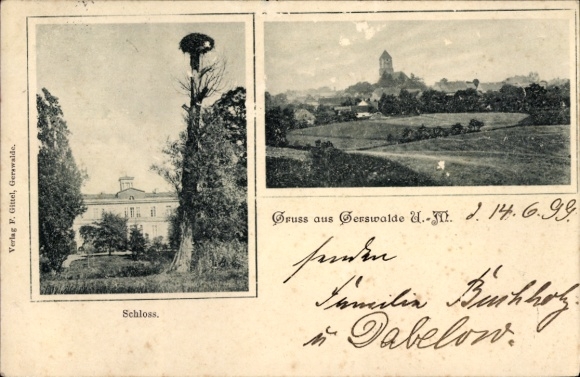 Verlag F. Gütel, Gerswalde.
Schloss.
Gruss aus Gerswalde U.-M.
d. 14.6.99.
senden
Familie Buchholz.
u Dabelow.